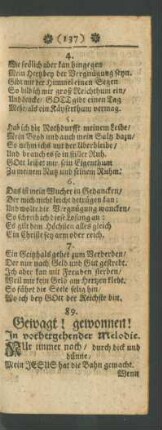 (137)
4.
Wie frölich aber kan hingegen
Mein Hertze bey der Vergnügung seyn.
Gibt mir der Himmel einen Segen
So bild ich mir groß Reichthum ein,
Und dencke: GOTT gibt einen Tag
Mehr als ein Käyserthum vermag.
5.
Hab ich die Nothdurfft meinem Leibe/
Mein Brod und auch mein Saltz dazu,
So nehm ichs mit der
Und brauch es sein in stiller Ruh.
GOtt lehret mir sein Eigenthum
Zu meinem Nutz und seinem Ruhm.
6.
Das ist mein Wucher in Gedancken/
Der mich nicht leicht betrügen kan:
Und wolte die Vergnügung wancken/
So schreib ich diese Losung an:
Es gilt dem Höchsten alles gleich
Ein Christe sey arm oder reich.
7.
Ein Geitzhals gehet zum Verderben,
Der nur nach Geld und Gut gestrebt.
Ich aber kan mit Freuden sterben,
Weil mir kein Geld am Hertzen klebt,
So fähret die Seele selig hin,
Wo ich bey GOtt der Reichste bin.
89.
Gewagt! gewonnen!
In vorhergehender Melodie.
Nur immer nach/ durch dick und
dünne:
Mein JESUS hat die Bahn gemacht.
Wenn